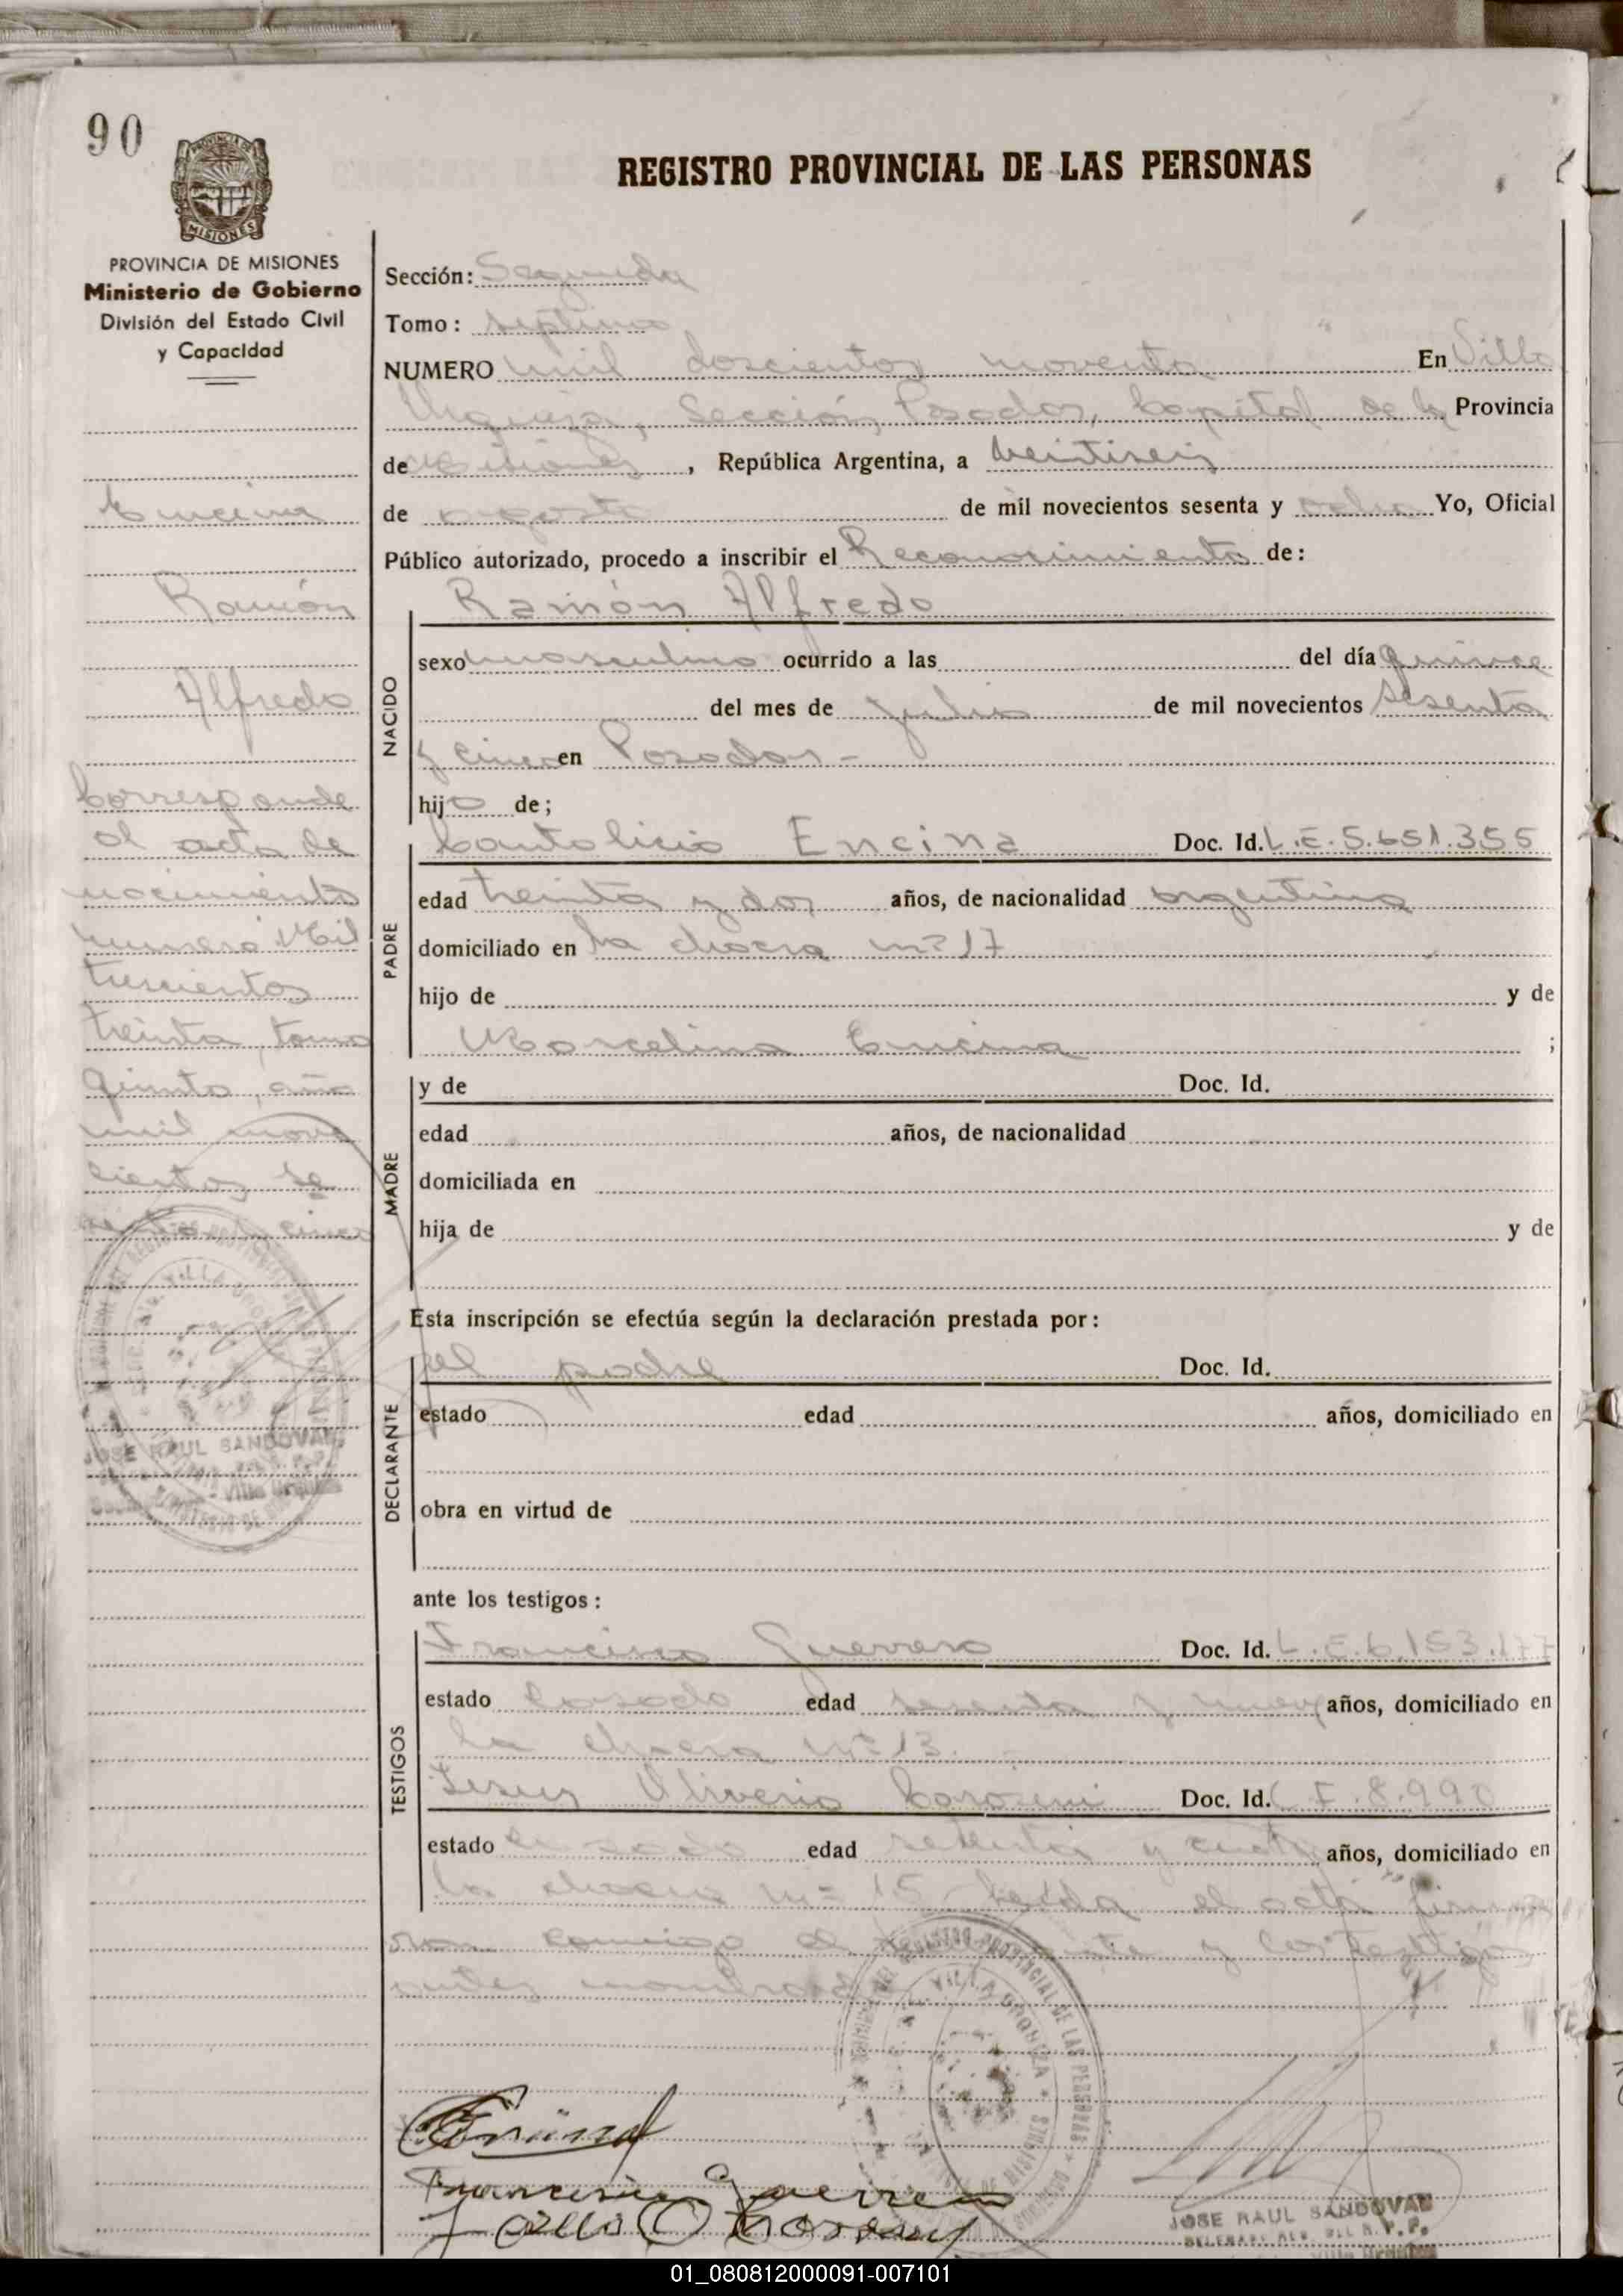 90
REGISTRO PROVINCIAL DE LAS PERSONAS
MISIONES
PROVINCIA DE MISIONES
Ministerio de Gobierno
División del Estado Civil
y Capacidad
Encina
Ramón
Alfredo
Corresponde
al acta de
nacimiento
numero Mil
trescientos
treinta, tomo
quinto, año
mil nove
cientos se
senta y cinco
JOSE RAUL SANDOVAL
Sección: Segunda
Tomo: septimo
NUMERO mil doscientos noventa En Villa
Urquiza, Sección Posadas, Capital de la Provincia
de Misiones, República Argentina, a veintiseis
de agosto de mil novecientos sesenta y ocho Yo, Oficial
Público autorizado, procedo a inscribir el Reconocimiento de:
NACIDO
Ramón Alfredo
sexo masculino ocurrido a las del día quince
del mes de julio de mil novecientos sesenta
y cinco en Posadas -
hijo de;
PADRE
Cantalicio Encina Doc. Id. L.E. 5.651.355
edad treinta y dos años, de nacionalidad argentina
domiciliado en la chacra nº 17
hijo de y de
Marcelina Encina ;
MADRE
y de Doc. Id.
edad años, de nacionalidad
domiciliada en
hija de y de
Esta inscripción se efectúa según la declaración prestada por:
DECLARANTE
el padre Doc. Id.
estado edad años, domiciliado en
obra en virtud de
ante los testigos:
TESTIGOS
Francisco Guerrero Doc. Id. L.E. 6.153.177
estado casado edad sesenta y nueve años, domiciliado en
la chacra nº 13.
Jesus Oliverio Doc. Id. C I. 8.990
estado casado edad setenta y cuatro años, domiciliado en
la chacra nº 15 - Leída el acta firma
ron conmigo el y los testigos
antes nombrados
Francisco Guerrero
JOSE RAUL SANDOVAL
01_080812000091-007101